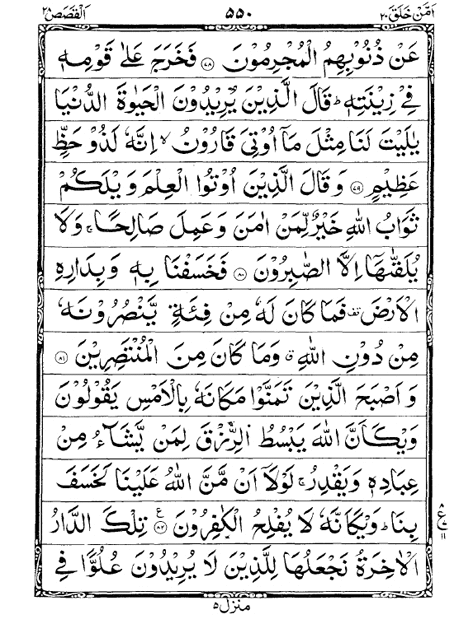 اَمَّنْ خَلَقَ ٢٠ ٥٥٠ اَلْقَصَص ٢٨
عَنْ ذُنُوْبِهِمُ الْمُجْرِمُوْنَ ﴿٧٨﴾ فَخَرَجَ عَلٰى قَوْمِهٖ
فِيْ زِيْنَتِهٖ ؕ قَالَ الَّذِيْنَ يُرِيْدُوْنَ الْحَيٰوةَ الدُّنْيَا
يٰلَيْتَ لَنَا مِثْلَ مَاۤ اُوْتِيَ قَارُوْنُ ۙ اِنَّهٗ لَذُوْ حَظٍّ
عَظِيْمٍ ﴿٧٩﴾ وَقَالَ الَّذِيْنَ اُوْتُوا الْعِلْمَ وَيْلَكُمْ
ثَوَابُ اللّٰهِ خَيْرٌ لِّمَنْ اٰمَنَ وَعَمِلَ صَالِحًا ۚ وَلَا
يُلَقّٰىهَاۤ اِلَّا الصّٰبِرُوْنَ ﴿٨٠﴾ فَخَسَفْنَا بِهٖ وَبِدَارِهِ
الْاَرْضَ ۫ فَمَا كَانَ لَهٗ مِنْ فِئَةٍ يَّنْصُرُوْنَهٗ
مِنْ دُوْنِ اللّٰهِ ۗ وَمَا كَانَ مِنَ الْمُنْتَصِرِيْنَ ﴿٨١﴾
وَاَصْبَحَ الَّذِيْنَ تَمَنَّوْا مَكَانَهٗ بِالْاَمْسِ يَقُوْلُوْنَ
وَيْكَاَنَّ اللّٰهَ يَبْسُطُ الرِّزْقَ لِمَنْ يَّشَآءُ مِنْ
عِبَادِهٖ وَيَقْدِرُ ۚ لَوْلَاۤ اَنْ مَّنَّ اللّٰهُ عَلَيْنَا لَخَسَفَ
بِنَا ؕ وَيْكَاَنَّهٗ لَا يُفْلِحُ الْكٰفِرُوْنَ ﴿٨٢﴾ تِلْكَ الدَّارُ
الْاٰخِرَةُ نَجْعَلُهَا لِلَّذِيْنَ لَا يُرِيْدُوْنَ عُلُوًّا فِي
منزل ٥